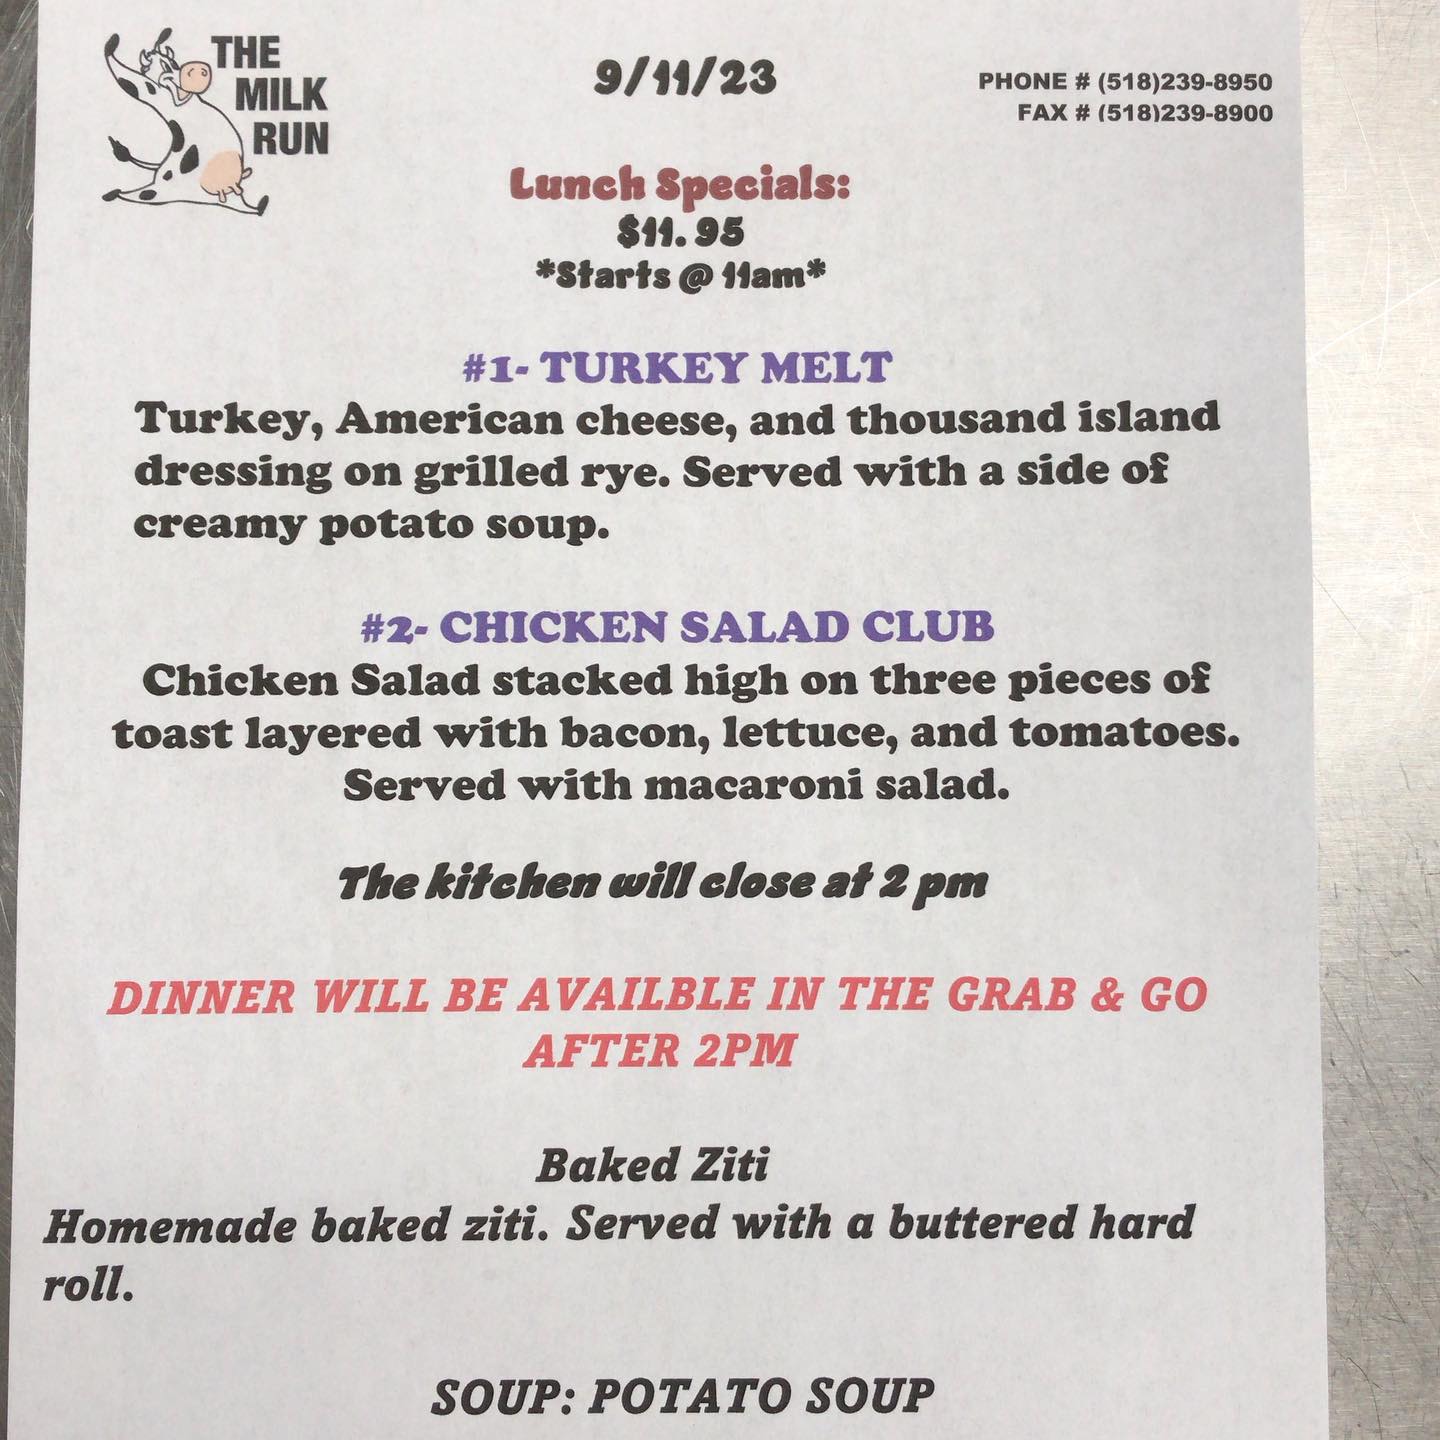 THE
MILK
RUN
9/11/23
PHONE # (518)239-8950
FAX # (518)239-8900
Lunch Specials:
$11.95
*Starts @ 11am*
#1- TURKEY MELT
Turkey, American cheese, and thousand island
dressing on grilled rye. Served with a side of
creamy potato soup.
#2- CHICKEN SALAD CLUB
Chicken Salad stacked high on three pieces of
toast layered with bacon, lettuce, and tomatoes.
Served with macaroni salad.
The kitchen will close at 2 pm
DINNER WILL BE AVAILBLE IN THE GRAB & GO
AFTER 2PM
Baked Ziti
Homemade baked ziti. Served with a buttered hard
roll.
SOUP: POTATO SOUP